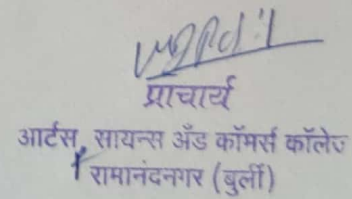 प्राचार्य
आर्टस, सायन्स अँड कॉमर्स कॉलेज
रामानंदनगर (बुर्ली)